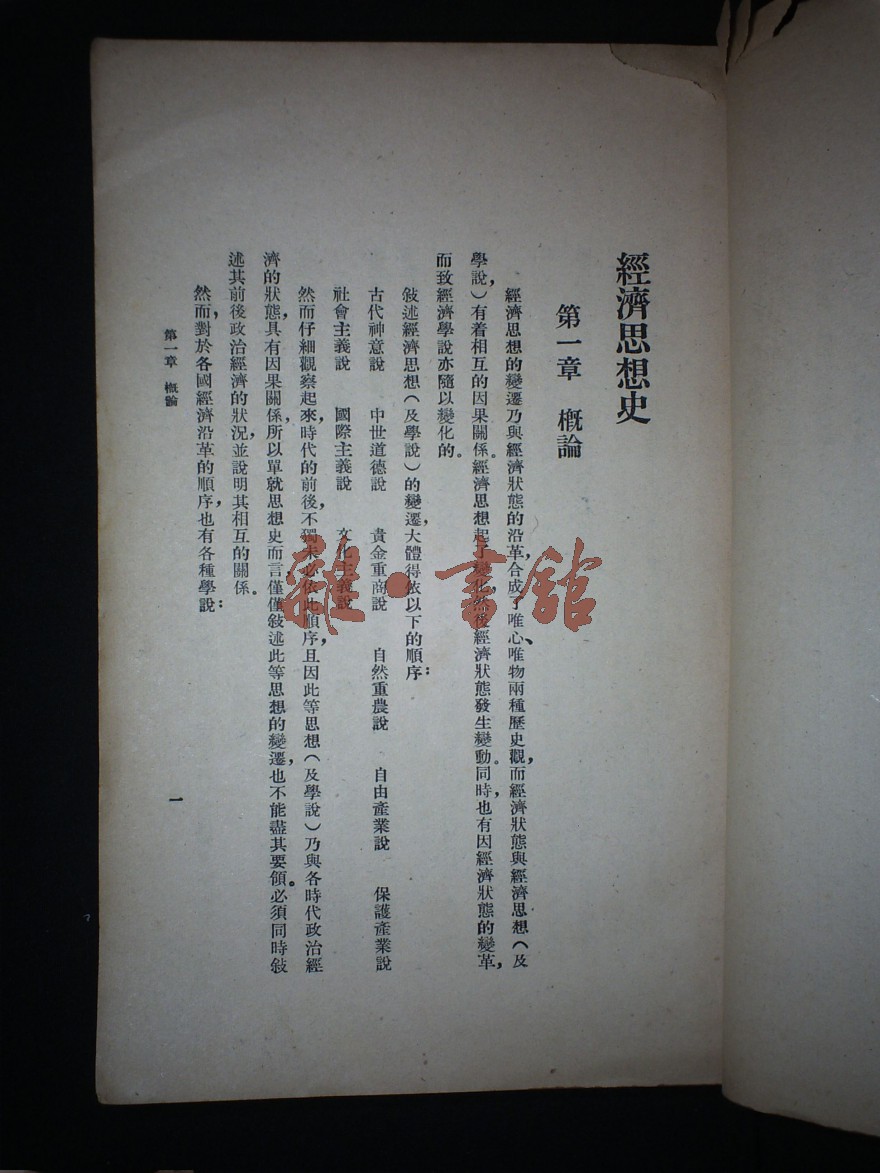 經濟思想史
第一章 概論
經濟思想的變遷乃與經濟狀態的沿革合成了唯心、唯物兩種歷史觀，而經濟狀態與經濟思想（及
學說，）有着相互的因果關係。經濟思想起了變化，然後經濟狀態發生變動。同時，也有因經濟狀態的變革，
而致經濟學說亦隨以變化的。
敍述經濟思想（及學說）的變遷，大體得依以下的順序：
古代神意說 中世道德說 貴金重商說 自然重農說 自由產業說 保護產業說
社會主義說 國際主義說 文化主義說
然而仔細觀察起來，時代的前後，不獨未必依此順序，且因此等思想（及學說）乃與各時代政治經
濟的狀態，具有因果關係，所以單就思想史而言，僅僅敍述此等思想的變遷，也不能盡其要領。必須同時敍
述其前後政治經濟的狀況，並說明其相互的關係。
然而，對於各國經濟沿革的順序，也有各種學說：
第一章 概論
一
雜·書館